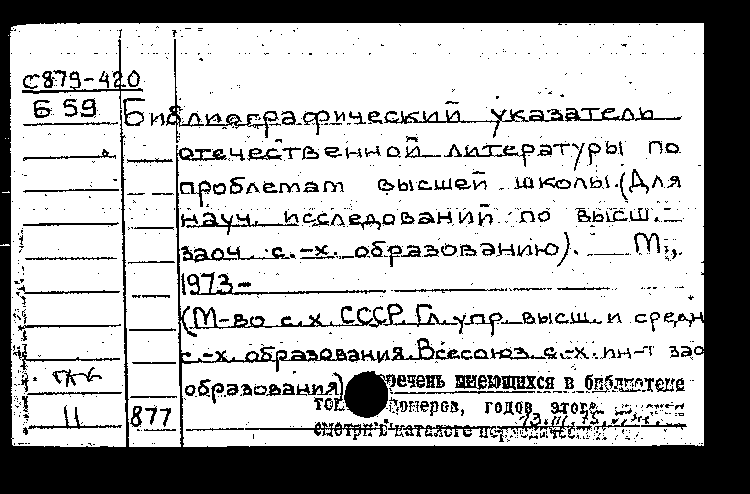 С879-420
Б 59 Библиографический указатель
отечественной литературы по
проблемам высшей школы. (Для
науч. исследований по высш.
заоч. с.-х. образованию). М.,
1973-
(М-во с.х. СССР. Гл. упр. высш. и средн
с.-х. образования. Всесоюз. с.-х. ин-т зао
образования)
перечень имеющихся в библиотеке
номеров, годов этого
11 877
смотри в каталоге